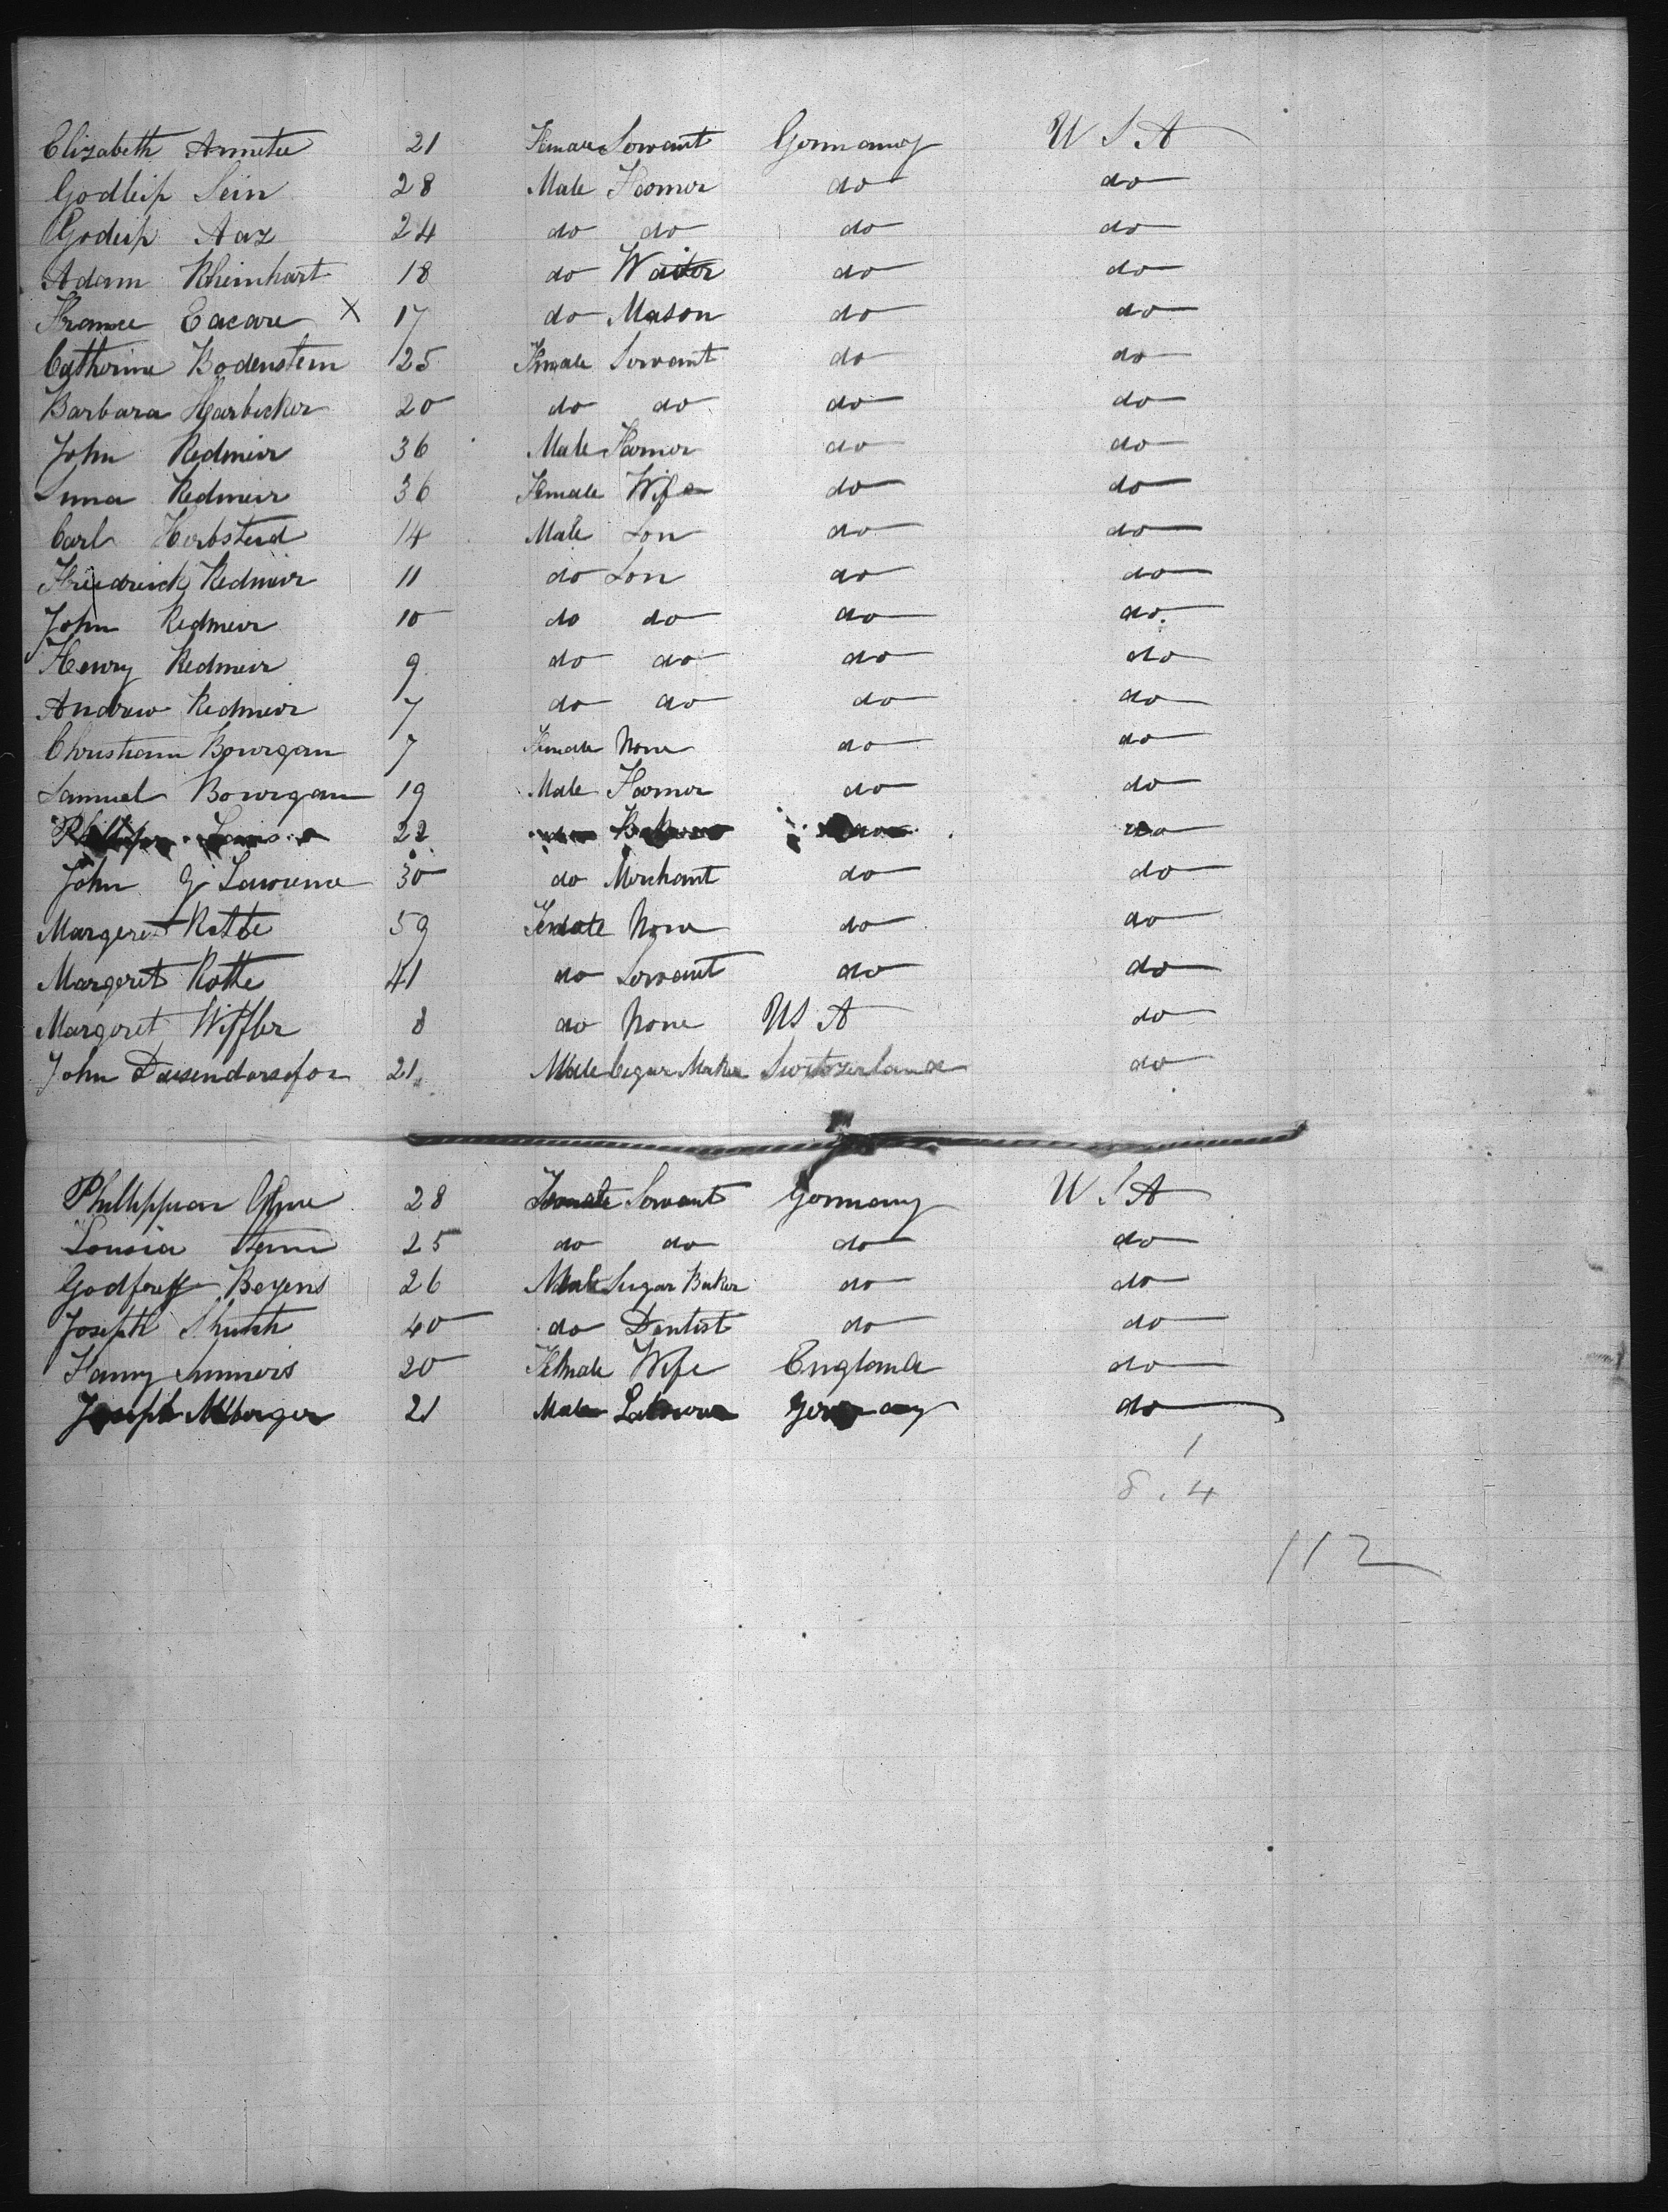 Elizabeth Annetee 21 Female Servant Germany U S A
Godleip Sein 28 Male Farmer do do
Godeip Aaz 24 do do do do
Adam Rheinhart 18 do Waiter do do
France Eacare X 17 do Mason do do
Catherine Bodenstein 25 Female Servant do do
Barbara Harbicker 20 do do do do
John Redmeir 36 Male Farmer do do
Redmeir 36 Female Wife do do
Carl Herbsteid 14 Male Son do do
Friedreick Redmeir 11 do Son do do
John Redmeir 10 do do do do
Henry Redmeir 9 do do do do
Andrew Redmeir 7 do do do do
Christiann Bowrgan 7 Female None do do
Samuel Bowrgan 19 Male Farmer do do
22 do
John G Lawrence 30 do Merchant do do
Margeret Rotte 59 Female None do do
Margeret Rotte 41 do Servant do do
Margeret Wiffler 8 do None US A do
John 21 Male Cegar Maker Switzerland do
28 Female Servant Germany U S A
Lousia 25 do do do do
Beyens 26 Male Sugar Baker do do
Joseph 40 do Dentist do do
Fanny 20 Female Wife England do
Joseph 21 Male Germany do
1
8.4
112